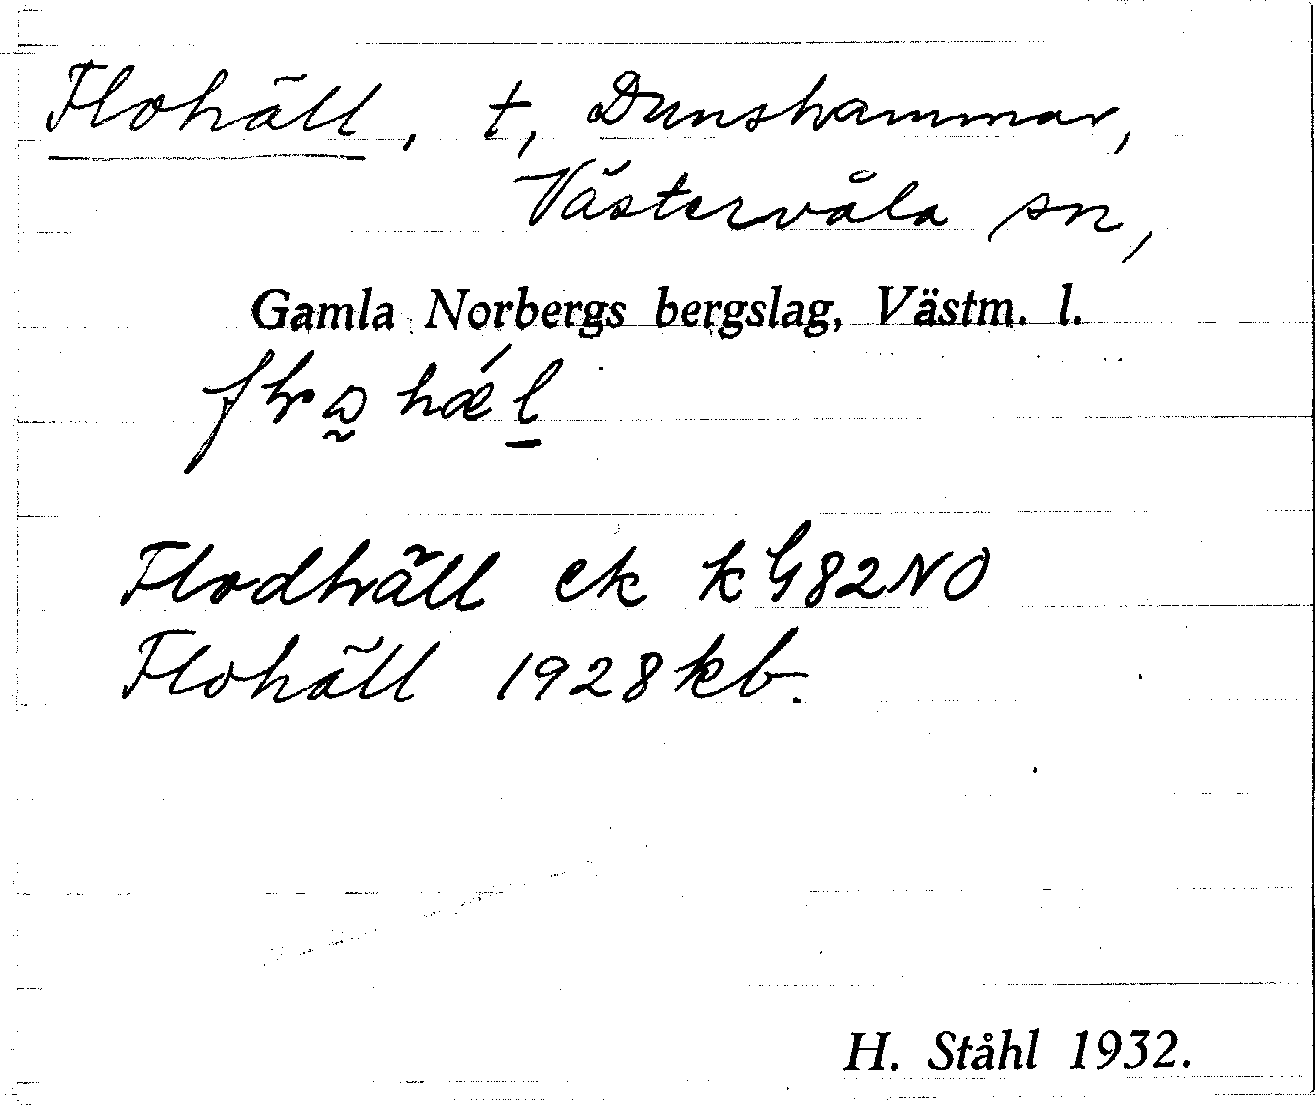 Flohäll, t, Dunshammar,
Västervåla sn,
Gamla Norbergs bergslag, Västm. l.
Flodhäll ek k G82NO
Flohäll 1928 kb.
H. Ståhl 1932.